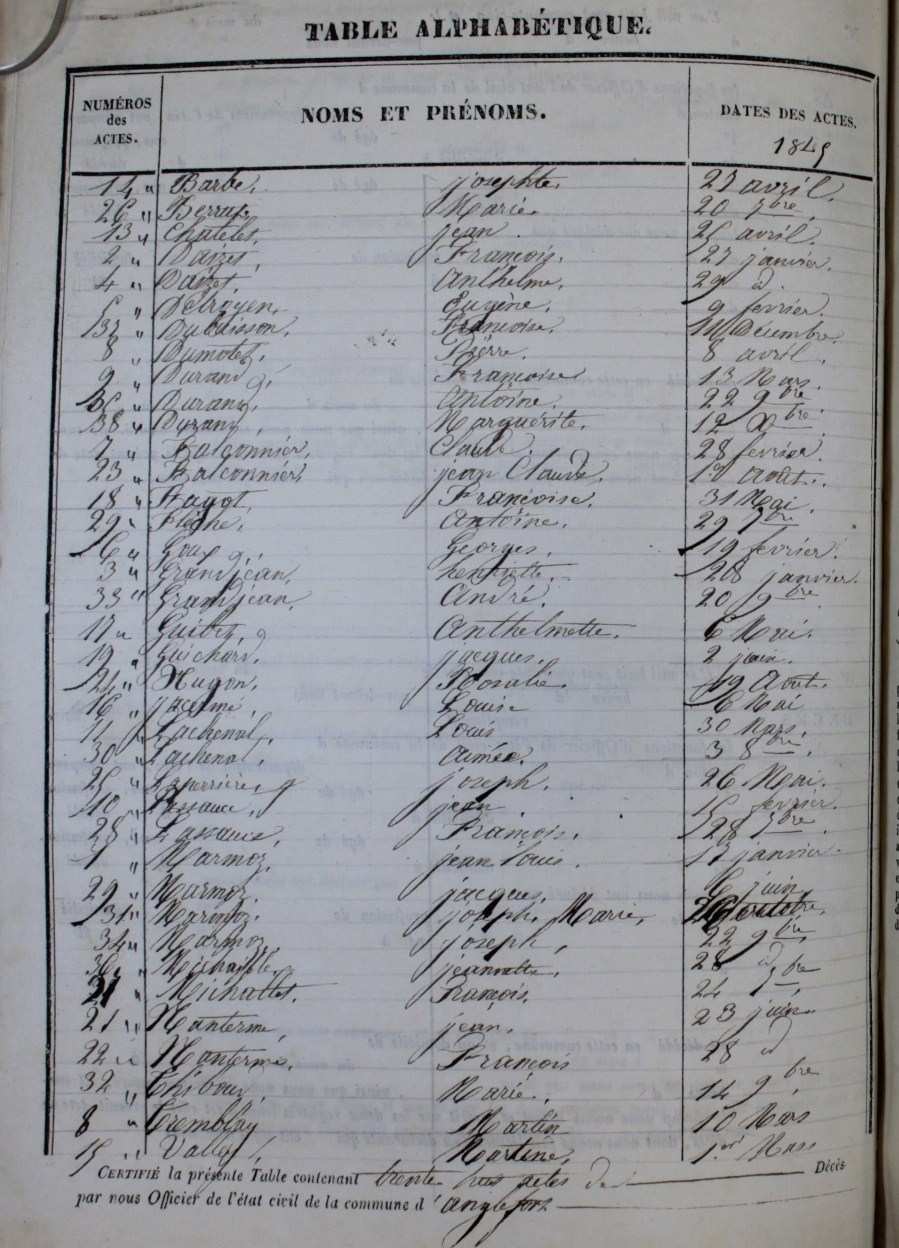 TABLE ALPHABÉTIQUE.
NUMÉROS des ACTES. NOMS ET PRÉNOMS. DATES DES ACTES.
1845
14 " Barbe, josephte. 27 avril.
26 " Marie. 20 7bre.
13 " Chatelet, jean. 25 avril.
2 " Daizet, François. 27 janvier.
4 " Daizet, Anthelme. 29 d.
5 " Eugène. 9 fevrier.
" Françoise. Décembre.
8 " Dumolet, Pierre. 8 avril.
9 " Durand, Françoise 13 Mars.
" Durand, Antoine. 22 9bre
38 " Durand, Marguerite. 12 Xbre.
7 " Falconnier, Claude 28 fevrier.
23 " Falconnier, jean Claude. Août.
18 " Fayot, Françoise. 31 Mai.
29 " Antoine. 29 7bre
6 " Goux Georges. 19 fevrier.
3 " Grandjean, henriette. 28 janvier.
33 " Grandjean, André. 20 9bre
17 " Anthelmette. 6 Mai.
19 " Guichard, jacques. 2 juin.
24 " Hugon, Rosalie. 19 Août.
16 " Louise 6 Mai
11 " Lachenal, Louis 30 Mars.
30 " Lachenal, Aimée. 3 8bre.
" Laperrière, joseph. 26 Mai.
10 " jean 15 fevrier.
28 " François. 28 7bre
1 " Marmoz, jean Louis. 17 janvier.
29 " Marmoz, jacques, 6 juin
31 " Marmoz, joseph Marie, octobre,
34 " Marmoz, joseph, 22 9bre
" jeannette, 28 d
" Michallet, François. 24 7bre
21 " Nanterme jean. 23 juin
22 " Nanterme, François 28 d
32 " Marie, 14 9bre
8 " Tremblay Martin 10 Mars
15 " Vallet, Martine. 1er Mars
CERTIFIÉ la présente Table contenant trente huit actes de Décès
par nous Officier de l'état civil de la commune d'anglefort